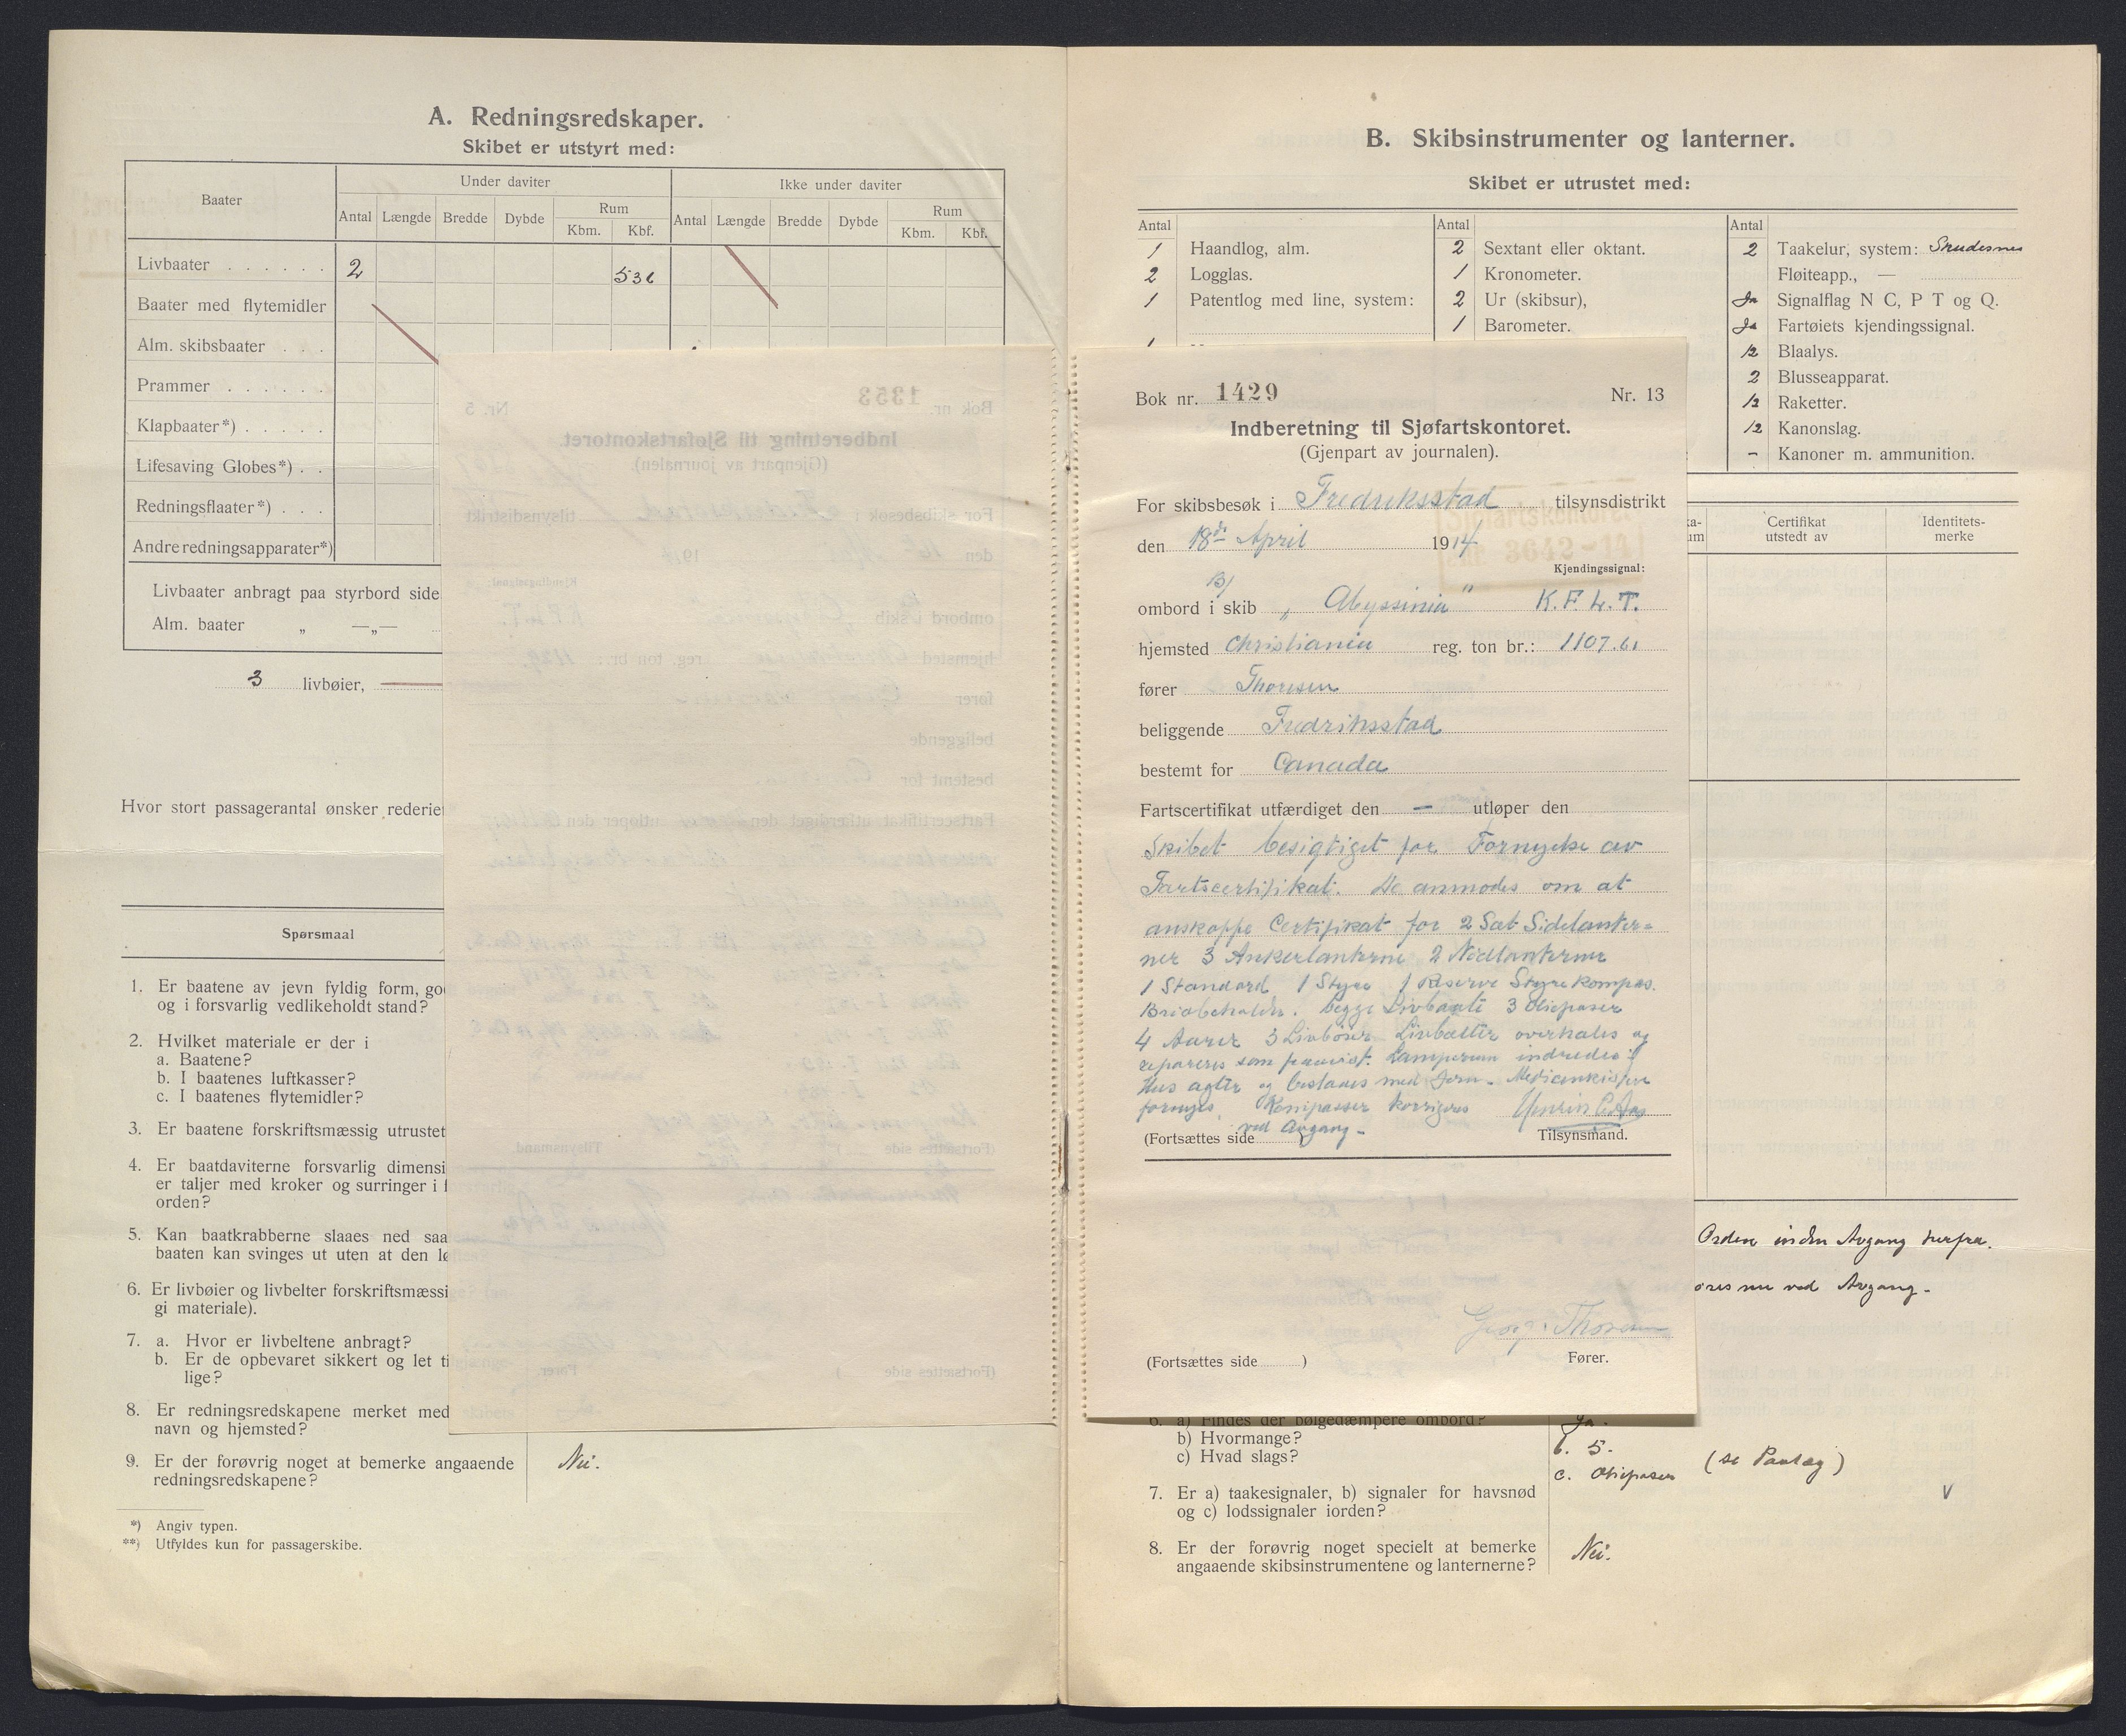 A. Redningsredskaper.
Skibet er utstyrt med:
Baater
Under daviter
Ikke under daviter
Antal Længde Bredde Dybde Rum Kbm. Kbf.
Antal Længde Bredde Dybde Rum Kbm. Kbf.
Livbaater . . . . . . 2 536
Baater med flytemidler
Alm. skibsbaater . . .
Prammer . . . . . .
Klapbaater*) . . . . .
Lifesaving Globes*) . .
Redningsflaater*) . . .
Andre redningsapparater*)
Livbaater anbragt paa styrbord side
Alm. baater „ —„—
3 livbøier,
Hvor stort passagerantal ønsker rederie
Spørsmaal
1. Er baatene av jevn fyldig form, go
og i forsvarlig vedlikeholdt stand?
2. Hvilket materiale er der i
a. Baatene?
b. I baatenes luftkasser?
c. I baatenes flytemidler?
3. Er baatene forskriftsmæssig utrustet
4. Er baatdaviterne forsvarlig dimensi
er taljer med kroker og surringer i f
orden?
5. Kan baatkrabberne slaaes ned saa
baaten kan svinges ut uten at den lø
6. Er livbøier og livbelter forskriftsmæssi
gi materiale).
7. a. Hvor er livbeltene anbragt?
b. Er de opbevaret sikkert og let ti
lige?
8. Er redningsredskapene merket med
navn og hjemsted?
9. Er der forøvrig noget at bemerke angaaende
redningsredskapene?
Nei.
*) Angiv typen.
**) Utfyldes kun for passagerskibe.
B. Skibsinstrumenter og lanterner.
Skibet er utrustet med:
Antal
1 Haandlog, alm.
2 Logglas.
1 Patentlog med line, system:
1
Antal
2 Sextant eller oktant.
1 Kronometer.
2 Ur (skibsur),
1 Barometer.
Antal
2 Taakelur, system: Skudesnes
Fløiteapp., —
Ja Signalflag N C, P T og Q.
Ja Fartøiets kjendingssignal.
12 Blaalys.
2 Blusseapparat.
12 Raketter.
12 Kanonslag.
- Kanoner m. ammunition.
Certifikat
utstedt av
Identitets-
merke
Bok nr. 1429 Nr. 13
Indberetning til Sjøfartskontoret.
(Gjenpart av journalen).
For skibsbesøk i Fredriksstad tilsynsdistrikt
Sjøfartskontoret
3642-14
den 18de April 1914
Kjendingssignal:
ombord i skib B/ „Abyssinia" K.F.L.T.
hjemsted Christiania reg. ton br.: 1107.61
fører Thoresen
beliggende Fredriksstad
bestemt for Canada
Fartscertifikat utfærdiget den — utløper den
Skibet besigtiget for Fornyelse av
Fartscertifikat. De anmodes om at
anskaffe Certifikat for 2 Sæt Sidelanter=
ner 3 Ankerlanterne 2 Nödlanterner
1 Standard 1 Styre 1 Reserve Styrekompas.
Brödbeholder. begge Livbaate 3 Oliepaser
4 Aarer 3 Livböier Livbælter overhales og
repareres som paavist. Lamperum indredes i
Hus agter og beslaaes med Jern. Medicinkisten
fornyes. Kompasser korrigeres
ved Avgang -
(Fortsættes side ) Tilsynsmand.
Georg Thoresen
(Fortsættes side ) Fører.
Orden inden Avgang herfra.
ved Avgang.
6. a) Findes der bølgedæmpere ombord?
b) Hvormange?
c) Hvad slags?
Ja.
b. 5.
c. Oliepaser (se Paalæg)
7. Er a) taakesignaler, b) signaler for havsnød
og c) lodssignaler iorden?
8. Er der forøvrig noget specielt at bemerke
angaaende skibsinstrumentene og lanternerne?
Nei.